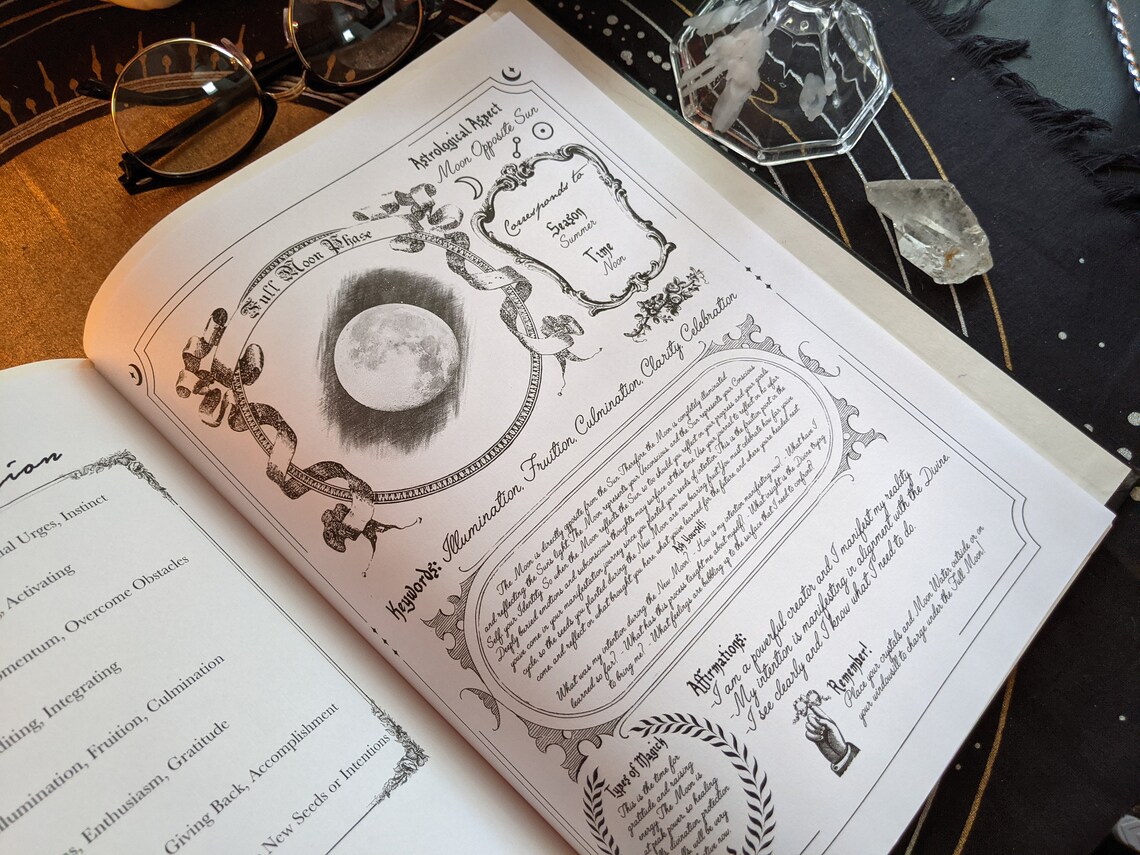 ion
ial Urges, Instinct
, Activating
omentum, Overcome Obstacles
diting, Integrating
llumination, Fruition, Culmination
ns, Enthusiasm, Gratitude
Giving Back, Accomplishment
New Seeds or Intentions
Astrological Aspect
Moon Opposite Sun
Full Moon Phase
Corresponds to
Season
Summer
Time
Noon
Keywords: Illumination, Fruition, Culmination, Clarity, Celebration
The Moon is directly opposite from the Sun. Therefore the Moon is completely illuminated
and reflecting the Sun's light. The Moon represents your Unconscious and the Sun represents your Conscious
Self, your Identity. So when the Moon reflects the Sun, so too should you reflect on your progress and your goals.
Deeply buried emotions and subconscious thoughts may surface at this time. Use your journal to reflect on how far
you've come in your manifestation journey since you planted your seeds of intention. This is the fruition point in the
cycle so the seeds you planted during the New Moon are now bearing fruit! You must celebrate how far you've
come and reflect on what brought you here, what you've learned for the future, and where you're headed next.
Ask Yourself:
What was my intention during the New Moon? - How is my intention manifesting now? - What have I
learned so far? - What has this process taught me about myself? - What insight is the Divine trying
to bring me? - What feelings are bubbling up to the surface that I need to confront?
Affirmations:
I am a powerful creator and I manifest my reality.
My intention is manifesting in alignment with the Divine.
I see clearly and I know what I need to do.
Remember!
Place your crystals and Moon Water outside or on
your windowsill to charge under the Full Moon!
Types of Magick
This is the time for
gratitude and raising
energy. The Moon is
at peak power so healing
divination, protection
will be very
now